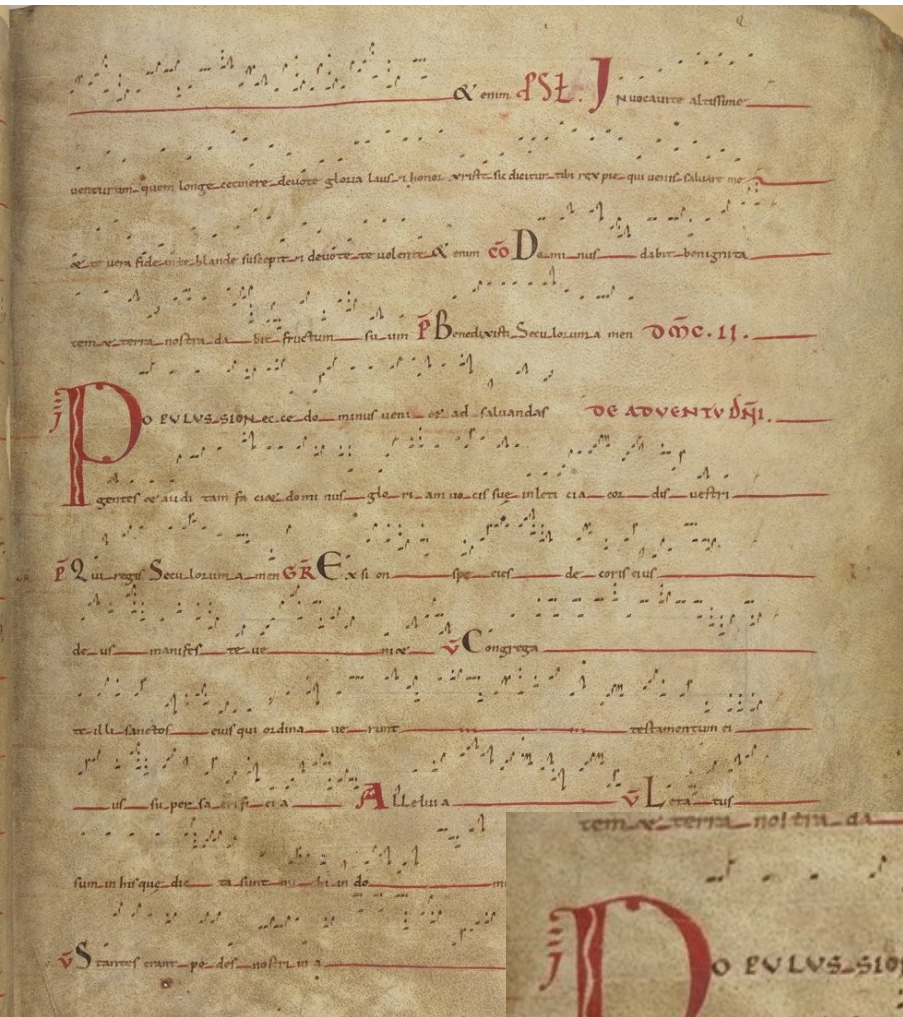 & enim PSL. INvocavite altissime
venturum quem longe cecinere devote gloria laus & honor xriste sic dicitur tibi rex pie qui venis salvare me
& te vera fide te blande suscepit & devote te volente & enim CO Do mi nus dabit benignita
tem & terra nostra da bit fructum su um P Benedixisti Seculorum a men DMC. II.
PO PULUS SION ec ce do minus veni et ad salvandas DE ADVENTU DNI.
gentes & au di tam fa ci& domi nus glo ri am vo cis sue in leti cia cor dis vestri
P Qui regis Seculorum a men GR Ex si on spe cies de coris eius
de us manifes te ve ni& V Congrega
te illi sanctos eius qui ordina ve runt testamentum ei
us su per sa crifi ci a Alleluia V Leta tus
sum in his que dic ta sunt mi hi in do m
V Stantes erant pe des nostri in a
tem & terra nostra da
PO PULUS SION